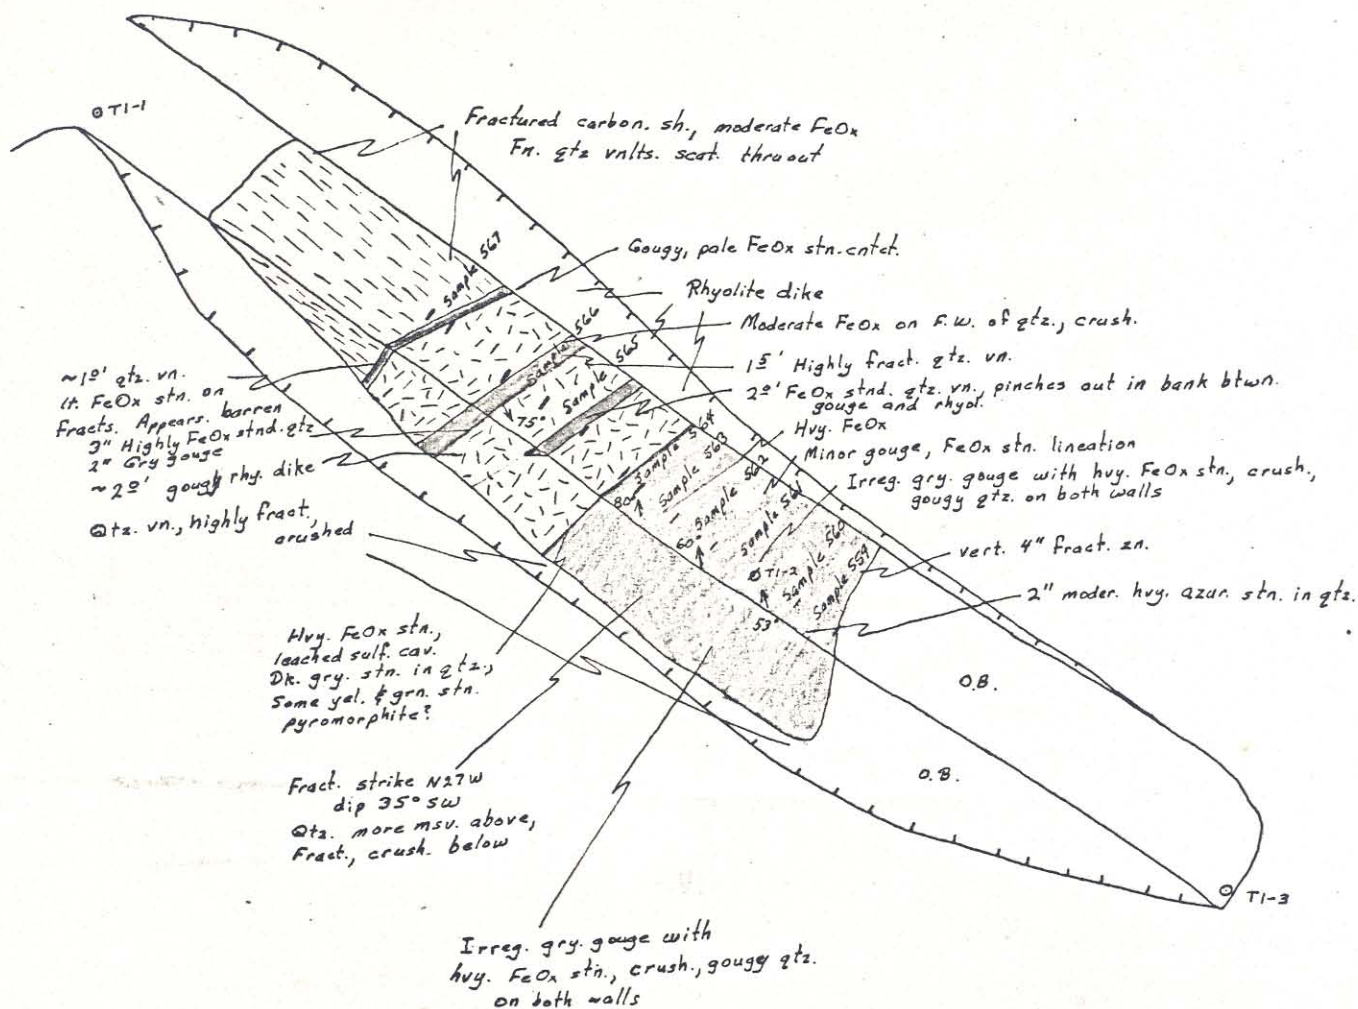 T1-1
Fractured carbon. sh., moderate FeOx
Fn. qtz vnlts. scat. thruout
Sample 567
Gougy, pale FeOx stn. cntct.
Rhyolite dike
Sample 566
Moderate FeOx on F.W. of qtz., crush.
Sample 565
1 5' Highly fract. qtz. vn.
2 0' FeOx stnd. qtz. vn., pinches out in bank btwn.
gouge and rhyol.
75°
Sample 564
Hvy. FeOx
Sample 563
Minor gouge, FeOx stn. lineation
80°
Sample 562
Irreg. gry. gouge with hvy. FeOx stn., crush.,
gougy qtz. on both walls
60°
Sample 561
T1-2
Sample 560
vert. 4" fract. zn.
53°
Sample 559
2" moder. hvy. azur. stn. in qtz.
~1 0' qtz. vn.
lt. FeOx stn. on
fracts. Appears. barren
3" Highly FeOx stnd. qtz
2" Gry gouge
~2 0' gougy rhy. dike
Qtz. vn., highly fract.,
crushed
Hvy. FeOx stn.,
leached sulf. cav.
Dk. gry. stn. in qtz.,
Some yel. & grn. stn.
pyromorphite?
O.B.
O.B.
Fract. strike N27W
dip 35° SW
Qtz. more msv. above,
Fract., crush. below
T1-3
Irreg. gry. gouge with
hvy. FeOx stn., crush., gougy qtz.
on both walls